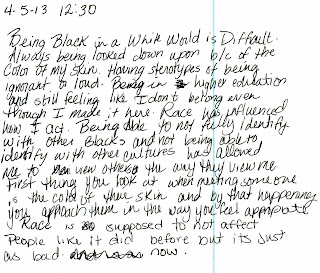 4-5-13 12:30
Being Black in a White World is Difficult.
Always being looked down upon b/c of the
Color of my skin. Having sterotypes of being
ignorant to loud. Being in higher education
and still feeling like I don't belong even
though I made it here. Race has influenced
how I act. Being able to not fully identify
with other Blacks and not being able to
identify with other cultures has allowed
me to view others the way they view me
First thing you look at when meeting someone
is the color of their skin and by that happening
you approach them in the way you feel appropriate
Race is supposed to not affect
People like it did before but its just
as bad now.